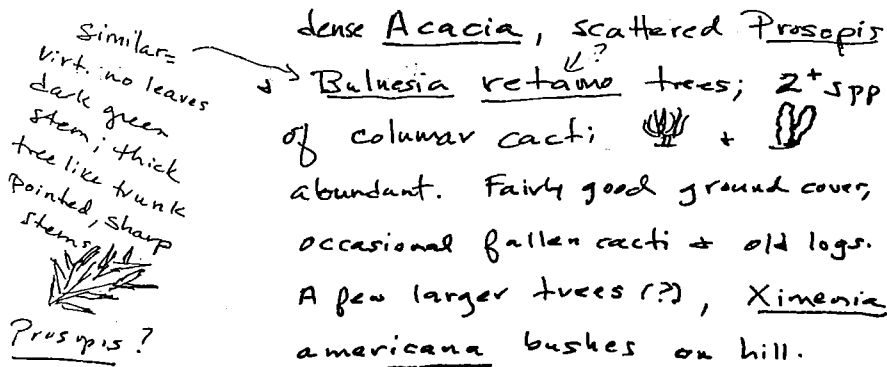 Similar =
virt. no leaves
dark green
stem; thick
tree like trunk
pointed, sharp
stems
Prosopis?
dense Acacia, scattered Prosopis
?
+ Bulnesia retamo trees; 2+ spp
of columar cacti + 
abundant. Fairly good ground cover,
occasional fallen cacti + old logs.
A few larger trees (?), Ximenia
americana bushes on hill.